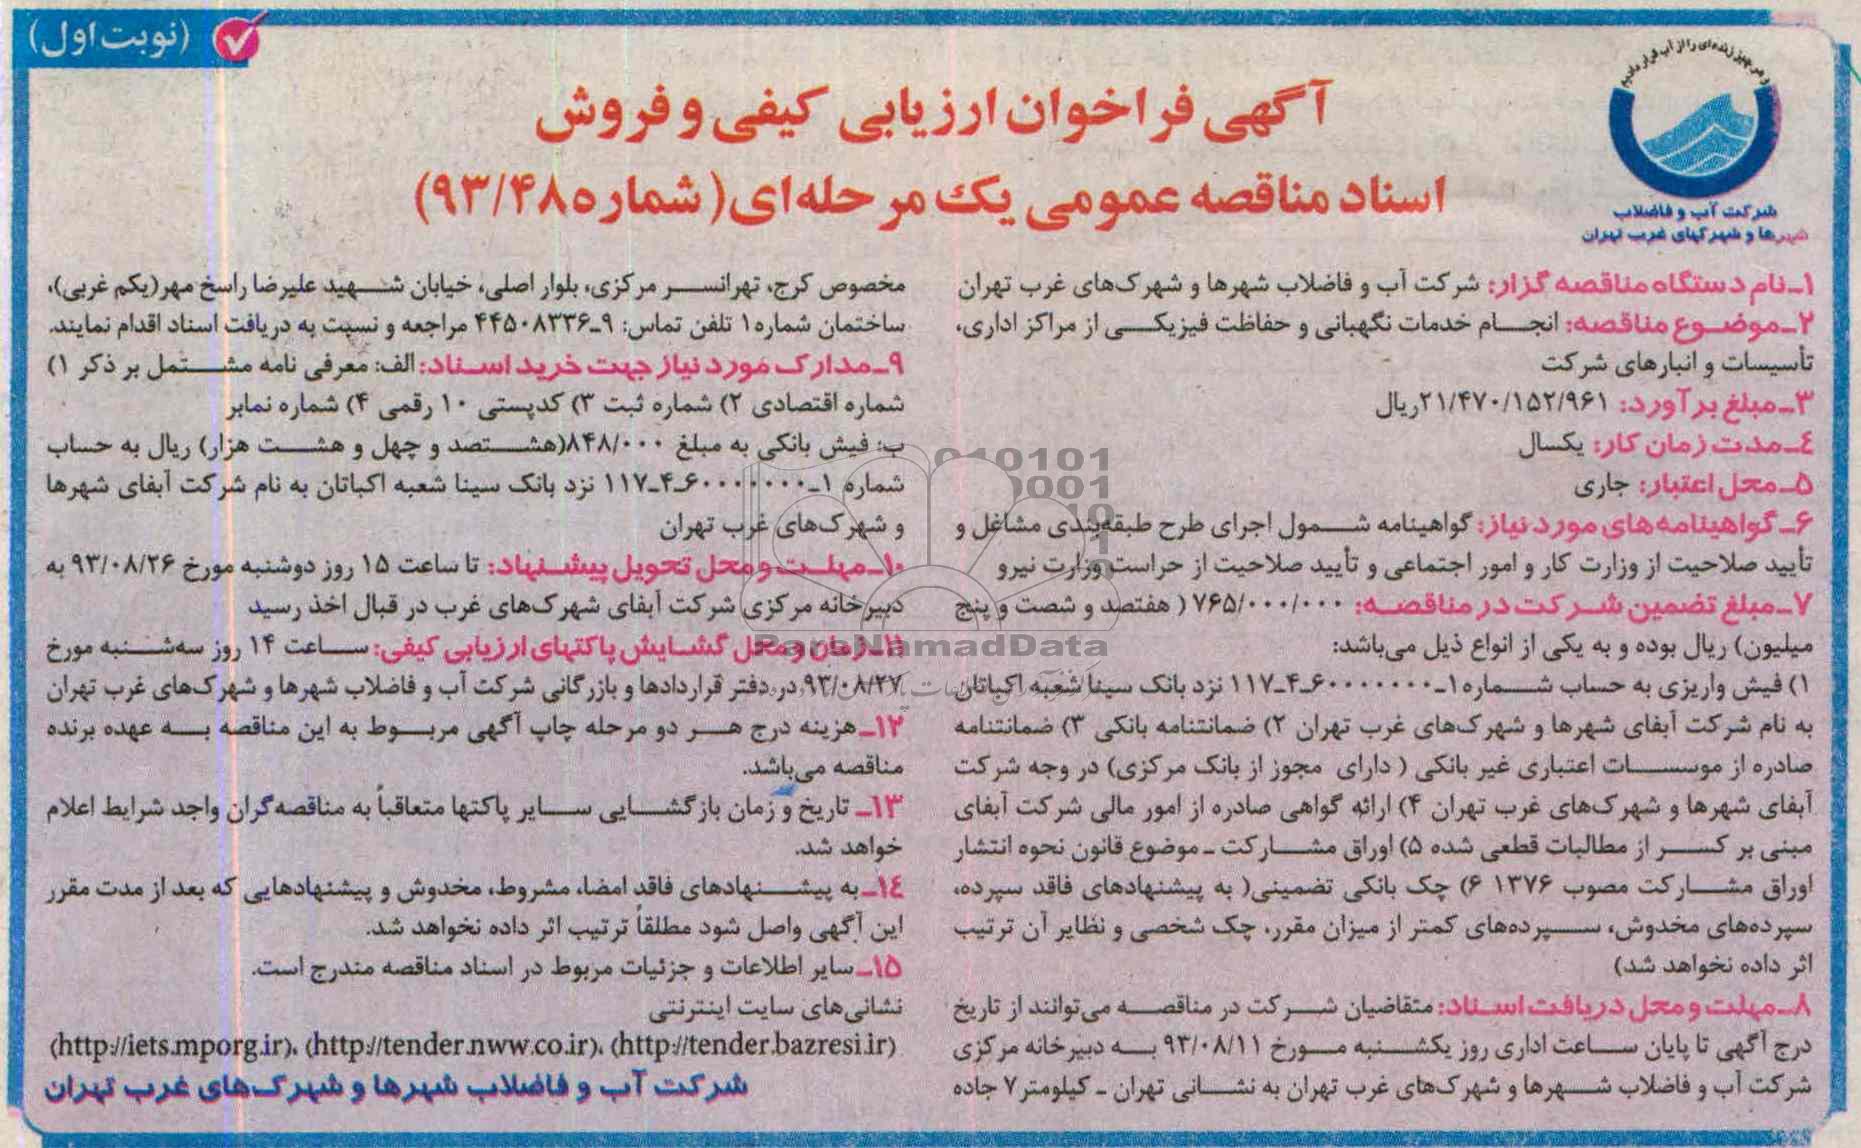 (نوبت اول)
و هر چیز زنده‌ای را از آب قرار دادیم
شرکت آب و فاضلاب
شهرها و شهرکهای غرب تهران
آگهی فراخوان ارزیابی کیفی و فروش
اسناد مناقصه عمومی یک مرحله‌ای (شماره ۹۳/۴۸)
۱ـ نام دستگاه مناقصه گزار: شرکت آب و فاضلاب شهرها و شهرک‌های غرب تهران
۲ـ موضوع مناقصه: انجام خدمات نگهبانی و حفاظت فیزیکی از مراکز اداری،
تأسیسات و انبارهای شرکت
۳ـ مبلغ برآورد: ۲۱/۴۷۰/۱۵۲/۹۶۱ریال
۴ـ مدت زمان کار: یکسال
۵ـ محل اعتبار: جاری
۶ـ گواهینامه‌های مورد نیاز: گواهینامه شمول اجرای طرح طبقه‌بندی مشاغل و
تأیید صلاحیت از وزارت کار و امور اجتماعی و تأیید صلاحیت از حراست وزارت نیرو
۷ـ مبلغ تضمین شرکت در مناقصه: ۷۶۵/۰۰۰/۰۰۰ ( هفتصد و شصت و پنج
میلیون) ریال بوده و به یکی از انواع ذیل می‌باشد:
۱) فیش واریزی به حساب شماره ۱ـ۶۰۰۰۰۰۰۰ـ۴ـ۱۱۷ نزد بانک سینا شعبه اکباتان
به نام شرکت آبفای شهرها و شهرک‌های غرب تهران ۲) ضمانتنامه بانکی ۳) ضمانتنامه
صادره از موسسات اعتباری غیر بانکی ( دارای مجوز از بانک مرکزی) در وجه شرکت
آبفای شهرها و شهرک‌های غرب تهران ۴) ارائه گواهی صادره از امور مالی شرکت آبفای
مبنی بر کسر از مطالبات قطعی شده ۵) اوراق مشارکت ـ موضوع قانون نحوه انتشار
اوراق مشارکت مصوب ۱۳۷۶ ۶) چک بانکی تضمینی( به پیشنهادهای فاقد سپرده،
سپرده‌های مخدوش، سپرده‌های کمتر از میزان مقرر، چک شخصی و نظایر آن ترتیب
اثر داده نخواهد شد)
۸ـ مهلت و محل دریافت اسناد: متقاضیان شرکت در مناقصه می‌توانند از تاریخ
درج آگهی تا پایان ساعت اداری روز یکشنبه مورخ ۹۳/۰۸/۱۱ به دبیرخانه مرکزی
شرکت آب و فاضلاب شهرها و شهرک‌های غرب تهران به نشانی تهران ـ کیلومتر ۷ جاده
مخصوص کرج، تهرانسر مرکزی، بلوار اصلی، خیابان شهید علیرضا راسخ مهر(یکم غربی)،
ساختمان شماره۱ تلفن تماس: ۹ـ۴۴۵۰۸۳۳۶ مراجعه و نسبت به دریافت اسناد اقدام نمایند.
۹ـ مدارک مورد نیاز جهت خرید اسناد: الف: معرفی نامه مشتمل بر ذکر ۱)
شماره اقتصادی ۲) شماره ثبت ۳) کدپستی ۱۰ رقمی ۴) شماره نمابر
ب: فیش بانکی به مبلغ ۸۴۸/۰۰۰(هشتصد و چهل و هشت هزار) ریال به حساب
شماره ۱ـ۶۰۰۰۰۰۰۰ـ۴ـ۱۱۷ نزد بانک سینا شعبه اکباتان به نام شرکت آبفای شهرها
و شهرک‌های غرب تهران
۱۰ـ مهلت و محل تحویل پیشنهاد: تا ساعت ۱۵ روز دوشنبه مورخ ۹۳/۰۸/۲۶ به
دبیرخانه مرکزی شرکت آبفای شهرک‌های غرب در قبال اخذ رسید
۱۱ـ زمان و محل گشایش پاکتهای ارزیابی کیفی: ساعت ۱۴ روز سه‌شنبه مورخ
۹۳/۰۸/۲۷ در دفتر قراردادها و بازرگانی شرکت آب و فاضلاب شهرها و شهرک‌های غرب تهران
۱۲ـ هزینه درج هر دو مرحله چاپ آگهی مربوط به این مناقصه به عهده برنده
مناقصه می‌باشد.
۱۳ـ تاریخ و زمان بازگشایی سایر پاکتها متعاقباً به مناقصه‌گران واجد شرایط اعلام
خواهد شد.
۱۴ـ به پیشنهادهای فاقد امضا، مشروط، مخدوش و پیشنهادهایی که بعد از مدت مقرر
این آگهی واصل شود مطلقاً ترتیب اثر داده نخواهد شد.
۱۵ـ سایر اطلاعات و جزئیات مربوط در اسناد مناقصه مندرج است.
نشانی‌های سایت اینترنتی
(http://iets.mporg.ir)، (http://tender.nww.co.ir)، (http://tender.bazresi.ir)
شرکت آب و فاضلاب شهرها و شهرک‌های غرب تهران
ParsNamadData